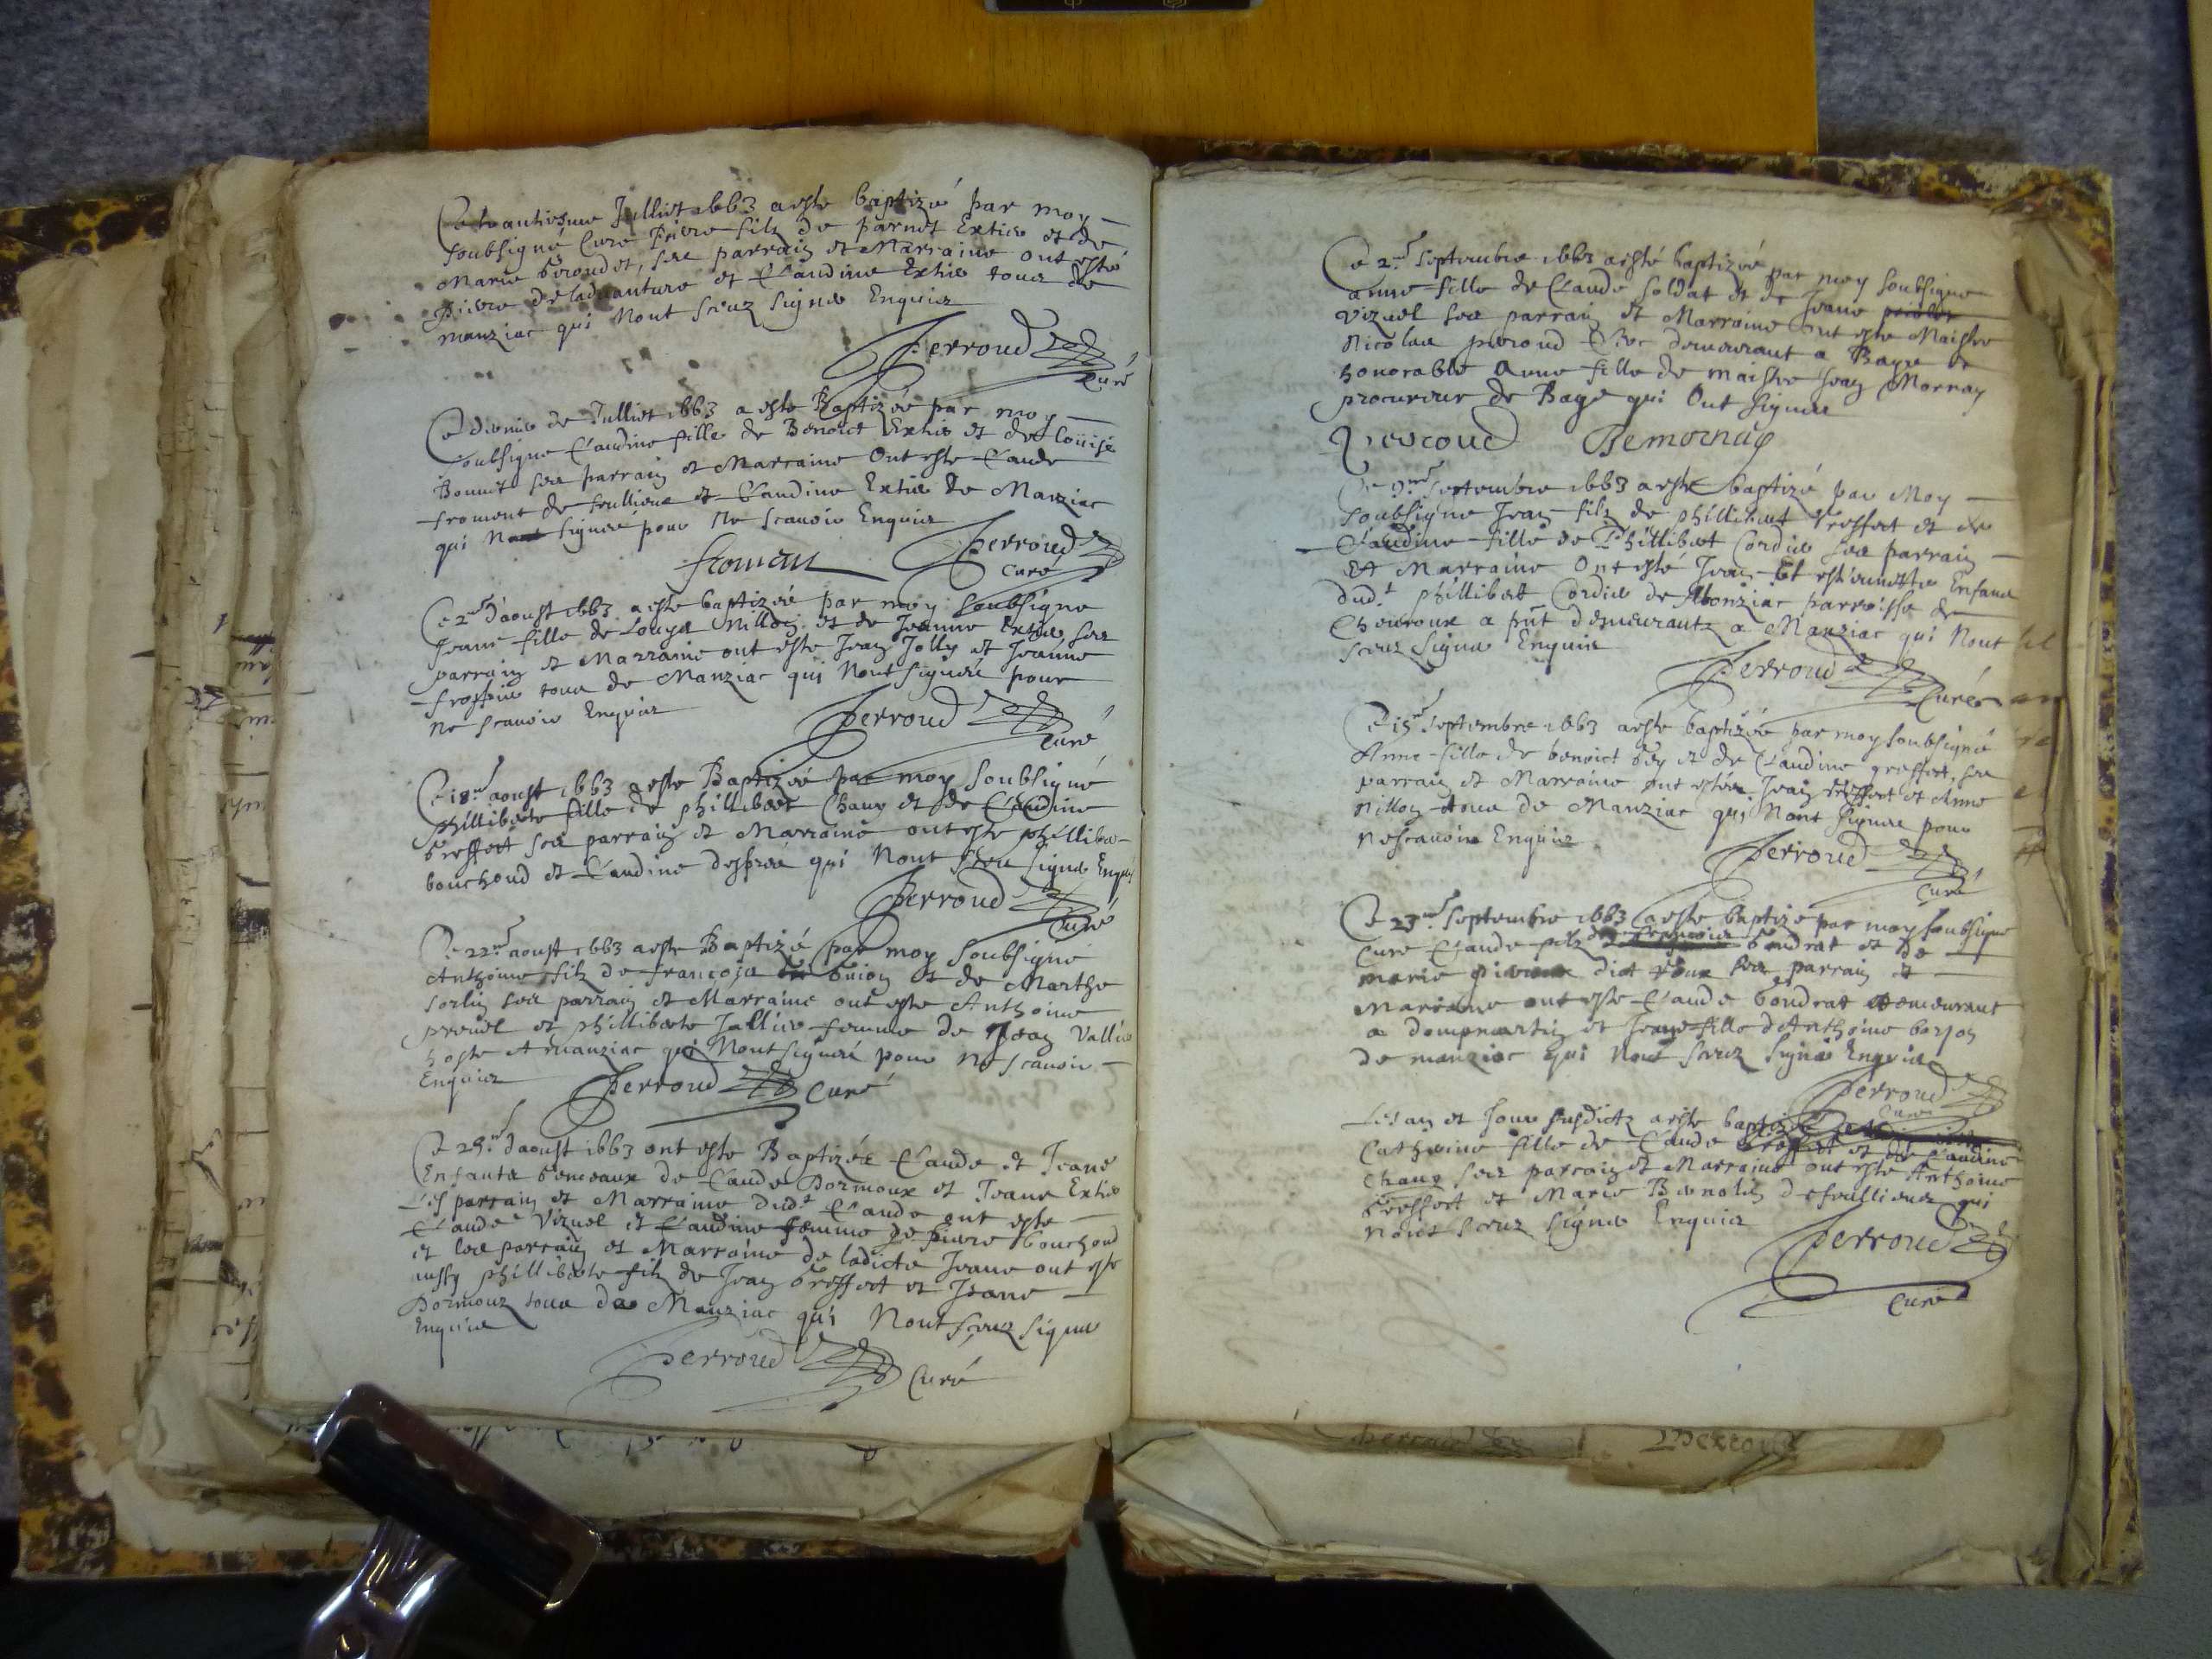 Juilliet 1663 a esté baptizé par moy
soubsigné Curé Pierre filz de Extier et de
Marie Beroudet, ses parrain et Marraine ont esté
Pierre deladvanture et Claudine Extier tous de
manziac qui Nont sceuz signer Enquis
Perroud
Curé
Ce dernier de Julliet 1663 a esté Baptizée par moy
soubsigne Claudine fille de Benoict Extier et de Loüise
Bonnit ses parrain et Marraine Ont esté Claude
froment de feullieux et Claudine Extier de Manziac
qui signer pour Ne scavoir Enquis
froment Perroud
Curé
Ce 2me d'aoust 1663 a este baptizée par moy soubsigne
Jeane fille de Louys Nillon et de Jeanne Extier, ses
parrain et Marraine ont este Jean Jolly et Jeanne
tous de Manziac qui Nont signéz pour
ne scavoir Enquis
Perroud
Curé
Ce 18me aoust 1663 a este Baptizée par moy soubsigné
phillibete fille de phillibert Chany et de Claudine
Greffet ses parrain et Marraine ont este phillibe
bouchoud et Claudine despréé qui Nont sceu signer Enquis
Perroud
Curé
Ce 22me aoust 1663 a este Baptizé par moy soubsigné
Anthoine filz de francois Guion et de Marthe
sorlin ses parrain et Marraine ont este Anthoine
prevel et phillibete Jallier femme de Jean Vallier
hoste A manziac qui Nont signéz pour Ne scavoir
Enquis Perroud Curé
Ce 25me daoust 1663 ont este Baptizés Claude et Jeane
Enfants Gemeaux de Claude Dormoux et Jeane Extier
Les parrain et Marraine dudt Claude ont este
Claude Vizuel et Claudine femme de Pierre bouchoud
et les parrain et Marraine de ladicte Jeane ont este
aussy phillibete fils de Jean Greffet et Jeane
Dormoux tous de Manziac qui Nont sceuz signer
Enquis
Perroud Curé
Ce 2me septembre 1663 a esté baptizée par moy soubsigne
anne fille de Claude soldat et de Jeane
Vizuel ses parrain et Marraine ont este Maistre
Nicolas peroud Clerc demeurant a Bage et
honorable Anne fille de maistre Jean Mornay
procureur de Bagé qui Ont signes
Perroud Demornay
Ce 9me septembre 1663 a este baptizé par Moy
soubsigne Jean filz de phillibert Greffet et de
Claudine fille de Phillibert Cordier ses parrain
Et Marraine Ont esté Jean Et Enfans
dudt phillibert Cordier de parroisse de
Chevroux a pnt demeurantz a Manziac qui Nont
sceuz signer Enquis
Perroud
Curé
Ce 15me septembre 1663 a este baptizée par moy soubsigné
Anne fille de benoict bey et de Claudine greffet, ses
parrain et Marraine ont estés Jean Greffet et Anne
Nillon tous de Manziac qui Nont signes pour
Ne scavoir Enquis
Perroud
Curé
Ce 23me septembre 1663 a este baptize par moy soubsigne
Curé Claude filz de Gondrat et de
marie dict ses parrain et
Marraine ont este Claude Gondrat demeurant
a dompmartin et Jeane fille dAnthoine borjon
de manziac qui Nont sceuz signer Enquis
Perroud
Curé
Les an et Jour susdictz a este baptizée
Catherine fille de Claude Greffet et de Claudine
Chany ses parrain et Marraine ont este Anthoine
Greffet et Marie de feullieux qui
Nont sceuz signer Enquis
Perroud
Curé